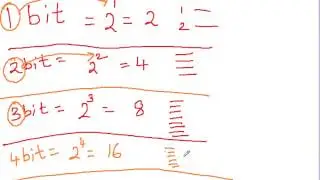 1 bit = 2¹ = 2 1 2
2 bit = 2² = 4
3 bit = 2³ = 8
4 bit = 2⁴ = 16